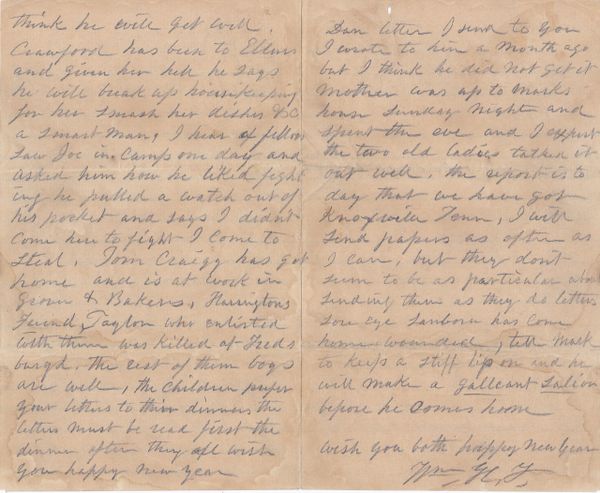 think he will get well.
Crawford has been to Ellens
and given her hell he says
he will break up housekeeping
for her smash her dishes &C
a smart man, I hear a fellow
saw Joe in, camp one day and
asked him how he liked fight
ing he pulled a watch out of
his pocket and says I didn't
come here to fight I come to
steal. Tom Craigg has got
home and is at work in
Grover & Bakers, Harringtons
Friend, Taylor who enlisted
with them was killed at Freds
burgh. the rest of them boys
are well, the children prefer
your letters to their dinners the
letters must be read first the
dinner after they all wish
you happy new year
Dan letter I send to you
I wrote to him a month ago
but I think he did not get it
Mother was up to Marks
house Sunday night and
spent the eve and I expect
the two old ladies talked it
out well. the report is to
day that we have got
Knoxville Tenn, I will
send papers as often as
I can, but they dont
seem to be as particular about
sending them as they do letters
Sore eye Sanborn has come
home wounded, tell Mark
to keep a stiff lip on and he
will make a gallcant
before he comes home
wish you both happy New Year
Wm H.